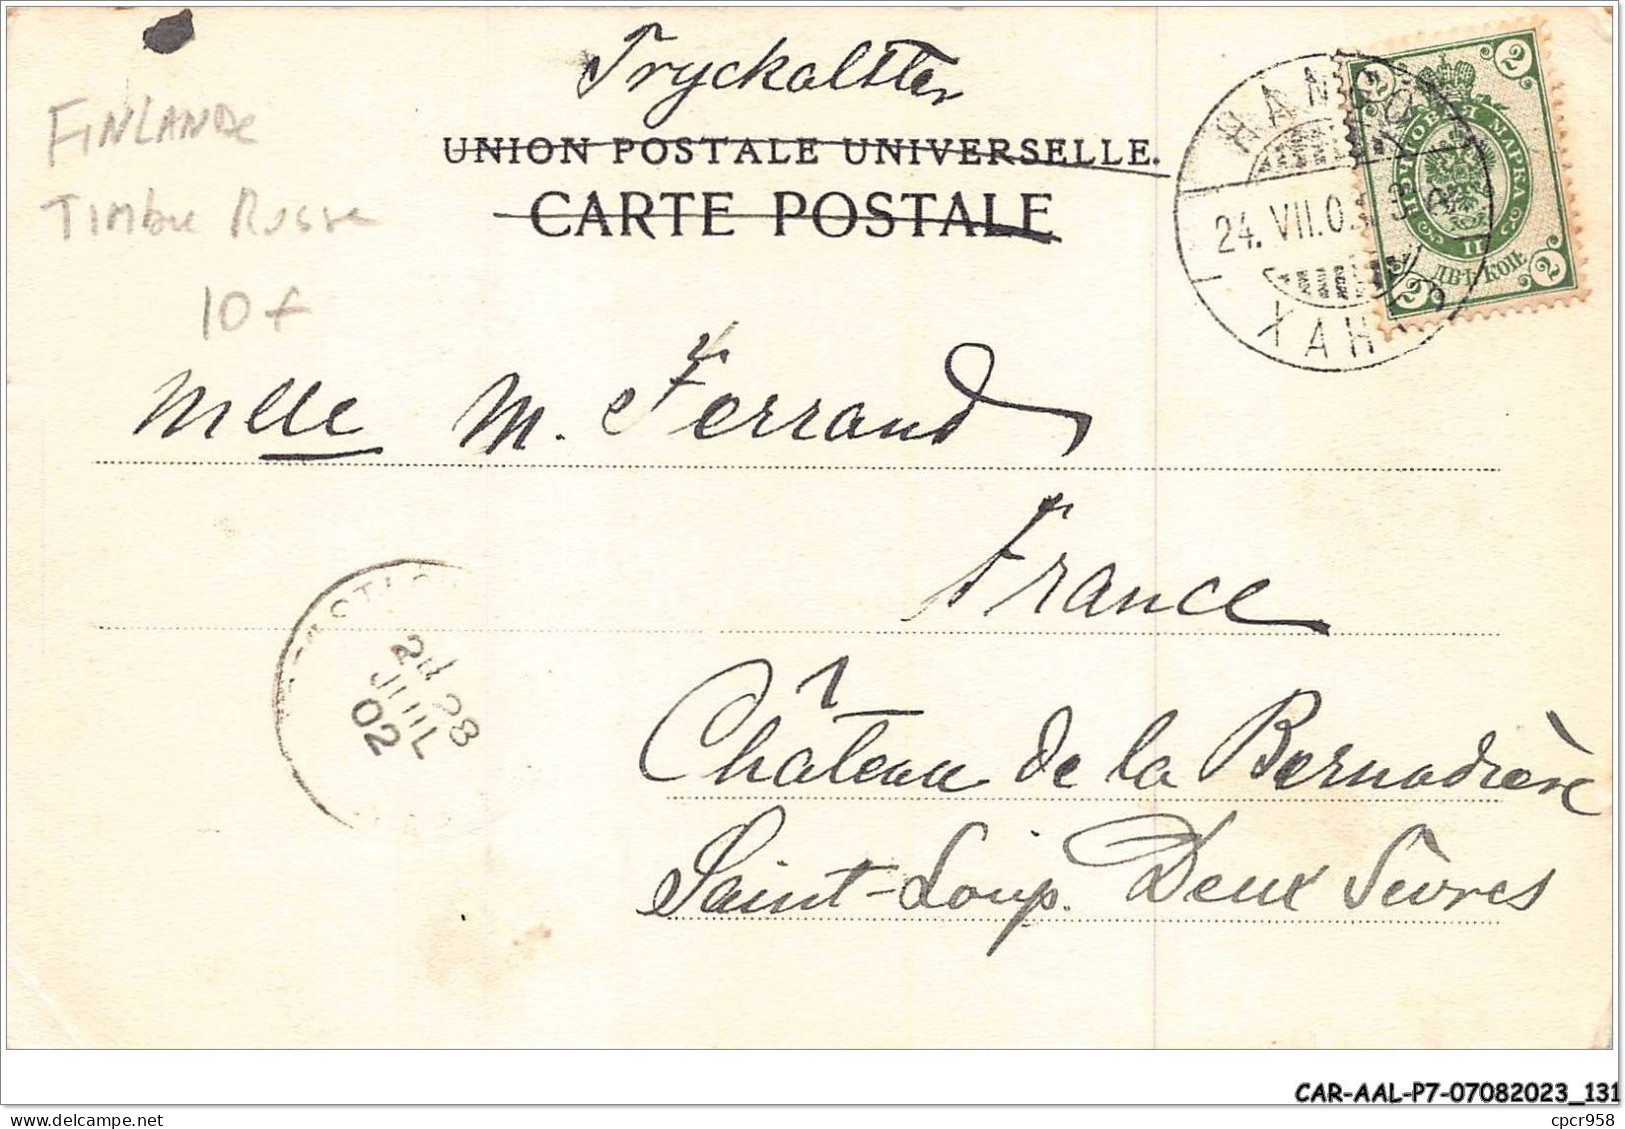 Tryckalster
UNION POSTALE UNIVERSELLE.
CARTE POSTALE
FINLANDE
TIMBRE RUSSE
10 f
HANGÖ
24. VII.0
ХАН
2
2
МАРКА
II
ДВѢ КОП.
2
2
Mlle M. Ferrand
France
28
JUIL
02
Château de la Bernardière
Saint-Loup. Deux Sèvres
CAR-AAL-P7-07082023_131
cpcr958